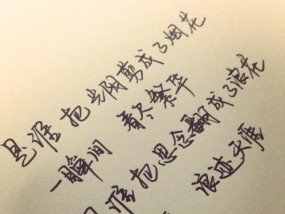 是谁 把光阴剪成了烟花
一瞬间 看尽繁华
是谁 把思念翻成了浪花
浪迹天涯